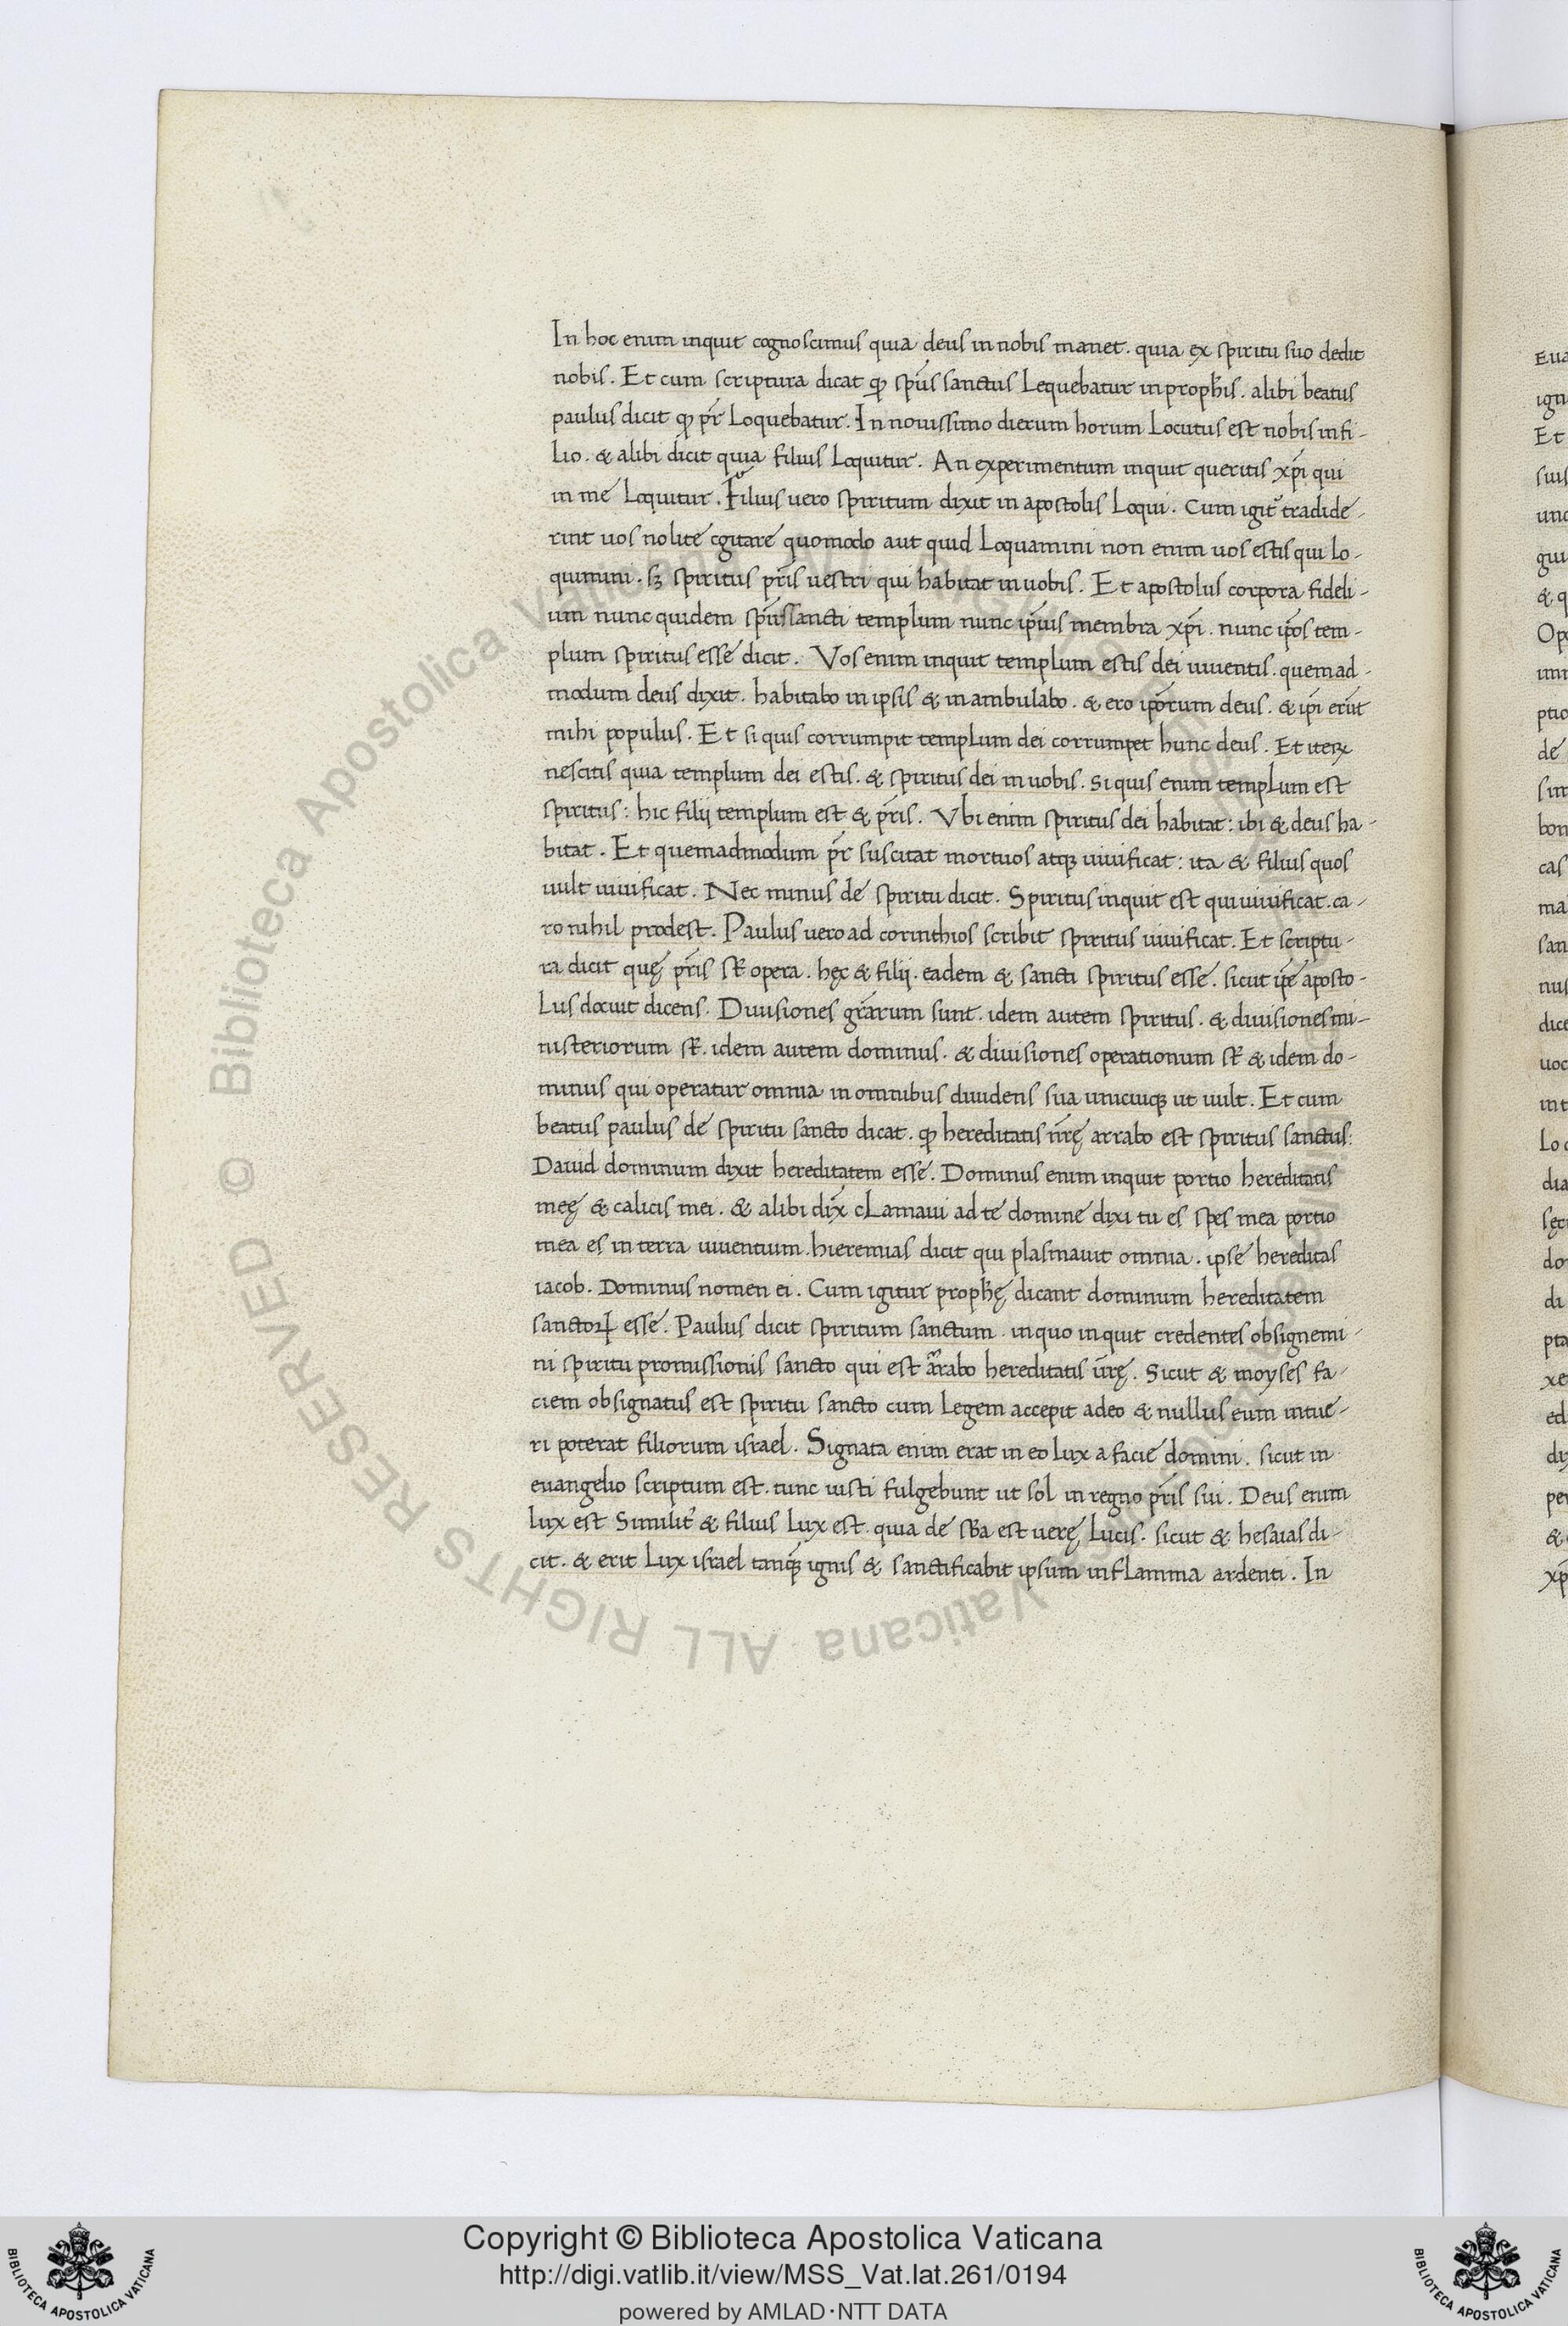 In hoc enim inquit cognoscimus quia deus in nobis manet. quia ex spiritu suo dedit
nobis. Et cum scriptura dicat qđ spūs sanctus Lequebatur in proph̄is. alibi beatus
paulus dicit qđ pr̄ Loquebatur. In nouissimo dierum horum Locutus est nobis in fi-
Lio. & alibi dicit quia filius Loquitur. An experimentum inquit queritis xp̄i qui
in me Loquitur. Filius uero spiritum dixit in apostolis Loqui. Cum igit᷑ tradide-
rint uos nolite cogitare quomodo aut quid Loquamini non enim uos estis qui lo-
quimini. sꝫ spiritus pr̄is uestri qui habitat in uobis. Et apostolus corpora fideli-
um nunc quidem spūs sancti templum nunc ip̄ius membra xp̄i. nunc ip̄os tem-
plum spiritus esse dicit. Vos enim inquit templum estis dei uiuentis. quemad-
modum deus dixit. habitabo in ipsis & inambulabo. & ero ip̄orum deus. & ip̄i erūt
mihi populus. Et si quis corrumpit templum dei corrumpet hunc deus. Et iteꝝ
nescitis quia templum dei estis. & spiritus dei in uobis. si quis enim templum est
spiritus: hic filij templum est & pr̄is. Vbi enim spiritus dei habitat: ibi & deus ha-
bitat. Et quemadmodum pr̄ suscitat mortuos atqꝫ uiuificat: ita & filius quos
uult uiuificat. Nec minus de spiritu dicit. Spiritus inquit est qui uiuificat. ca-
ro nihil prodest. Paulus uero ad corinthios scribit spiritus uiuificat. Et scriptu-
ra dicit quę pr̄is st̄ opera. hęc & filij. eadem & sancti spiritus esse. sicut ip̄e aposto-
Lus docuit dicens. Diuisiones gr̄arum sunt. idem autem spiritus. & diuisiones mi-
nisteriorum st̄. idem autem dominus. & diuisiones operationum st̄ & idem do-
minus qui operatur omnia in omnibus diuidens sua unicuiqꝫ ut uult. Et cum
beatus paulus de spiritu sancto dicat. qđ hereditatis nr̄ę arrabo est spiritus sanctus:
Dauid dominum dixit hereditatem esse. Dominus enim inquit portio hereditatis
meę & calicis mei. & alibi dix̄ cLamaui ad te domine dixi tu es spes mea portio
mea es in terra uiuentium. hieremias dicit qui plasmauit omnia. ipse hereditas
iacob. Dominus nomen ei. Cum igitur proph̄ę dicant dominum hereditatem
sanctoꝝ esse. Paulus dicit spiritum sanctum. in quo inquit credentes obsignemi-
ni spiritu promissionis sancto qui est arrabo hereditatis ur̄ę. Sicut & moyses fa-
ciem obsignatus est spiritu sancto cum Legem accepit adeo & nullus eum intue-
ri poterat filiorum israel. Signata enim erat in eo Lux a facie domini. sicut in
euangelio scriptum est. tunc iusti fulgebunt ut sol in regno pr̄is sui. Deus enim
lux est Similit᷑ & filius Lux est. quia de sb̄a est uerę Lucis. sicut & hesaias di-
cit. & erit Lux israel tanqꝫ ignis & sanctificabit ipsum in fLamma ardenti. In
Eua
ign
Et
siu
und
gui
& q
Opo
imi
ptio
de
sim
bon
cas
ma
san
nus
dice
uoc
int
Lo
dia
sęc
do
di
pta
xe
ed
dix
per
&
xp̄
© Biblioteca Apostolica Vaticana ALL RIGHTS RESERVED
Copyright © Biblioteca Apostolica Vaticana
http://digi.vatlib.it/view/MSS_Vat.lat.261/0194
powered by AMLAD·NTT DATA
BIBLIOTECA APOSTOLICA VATICANA
BIBLIOTECA APOSTOLICA VATICANA